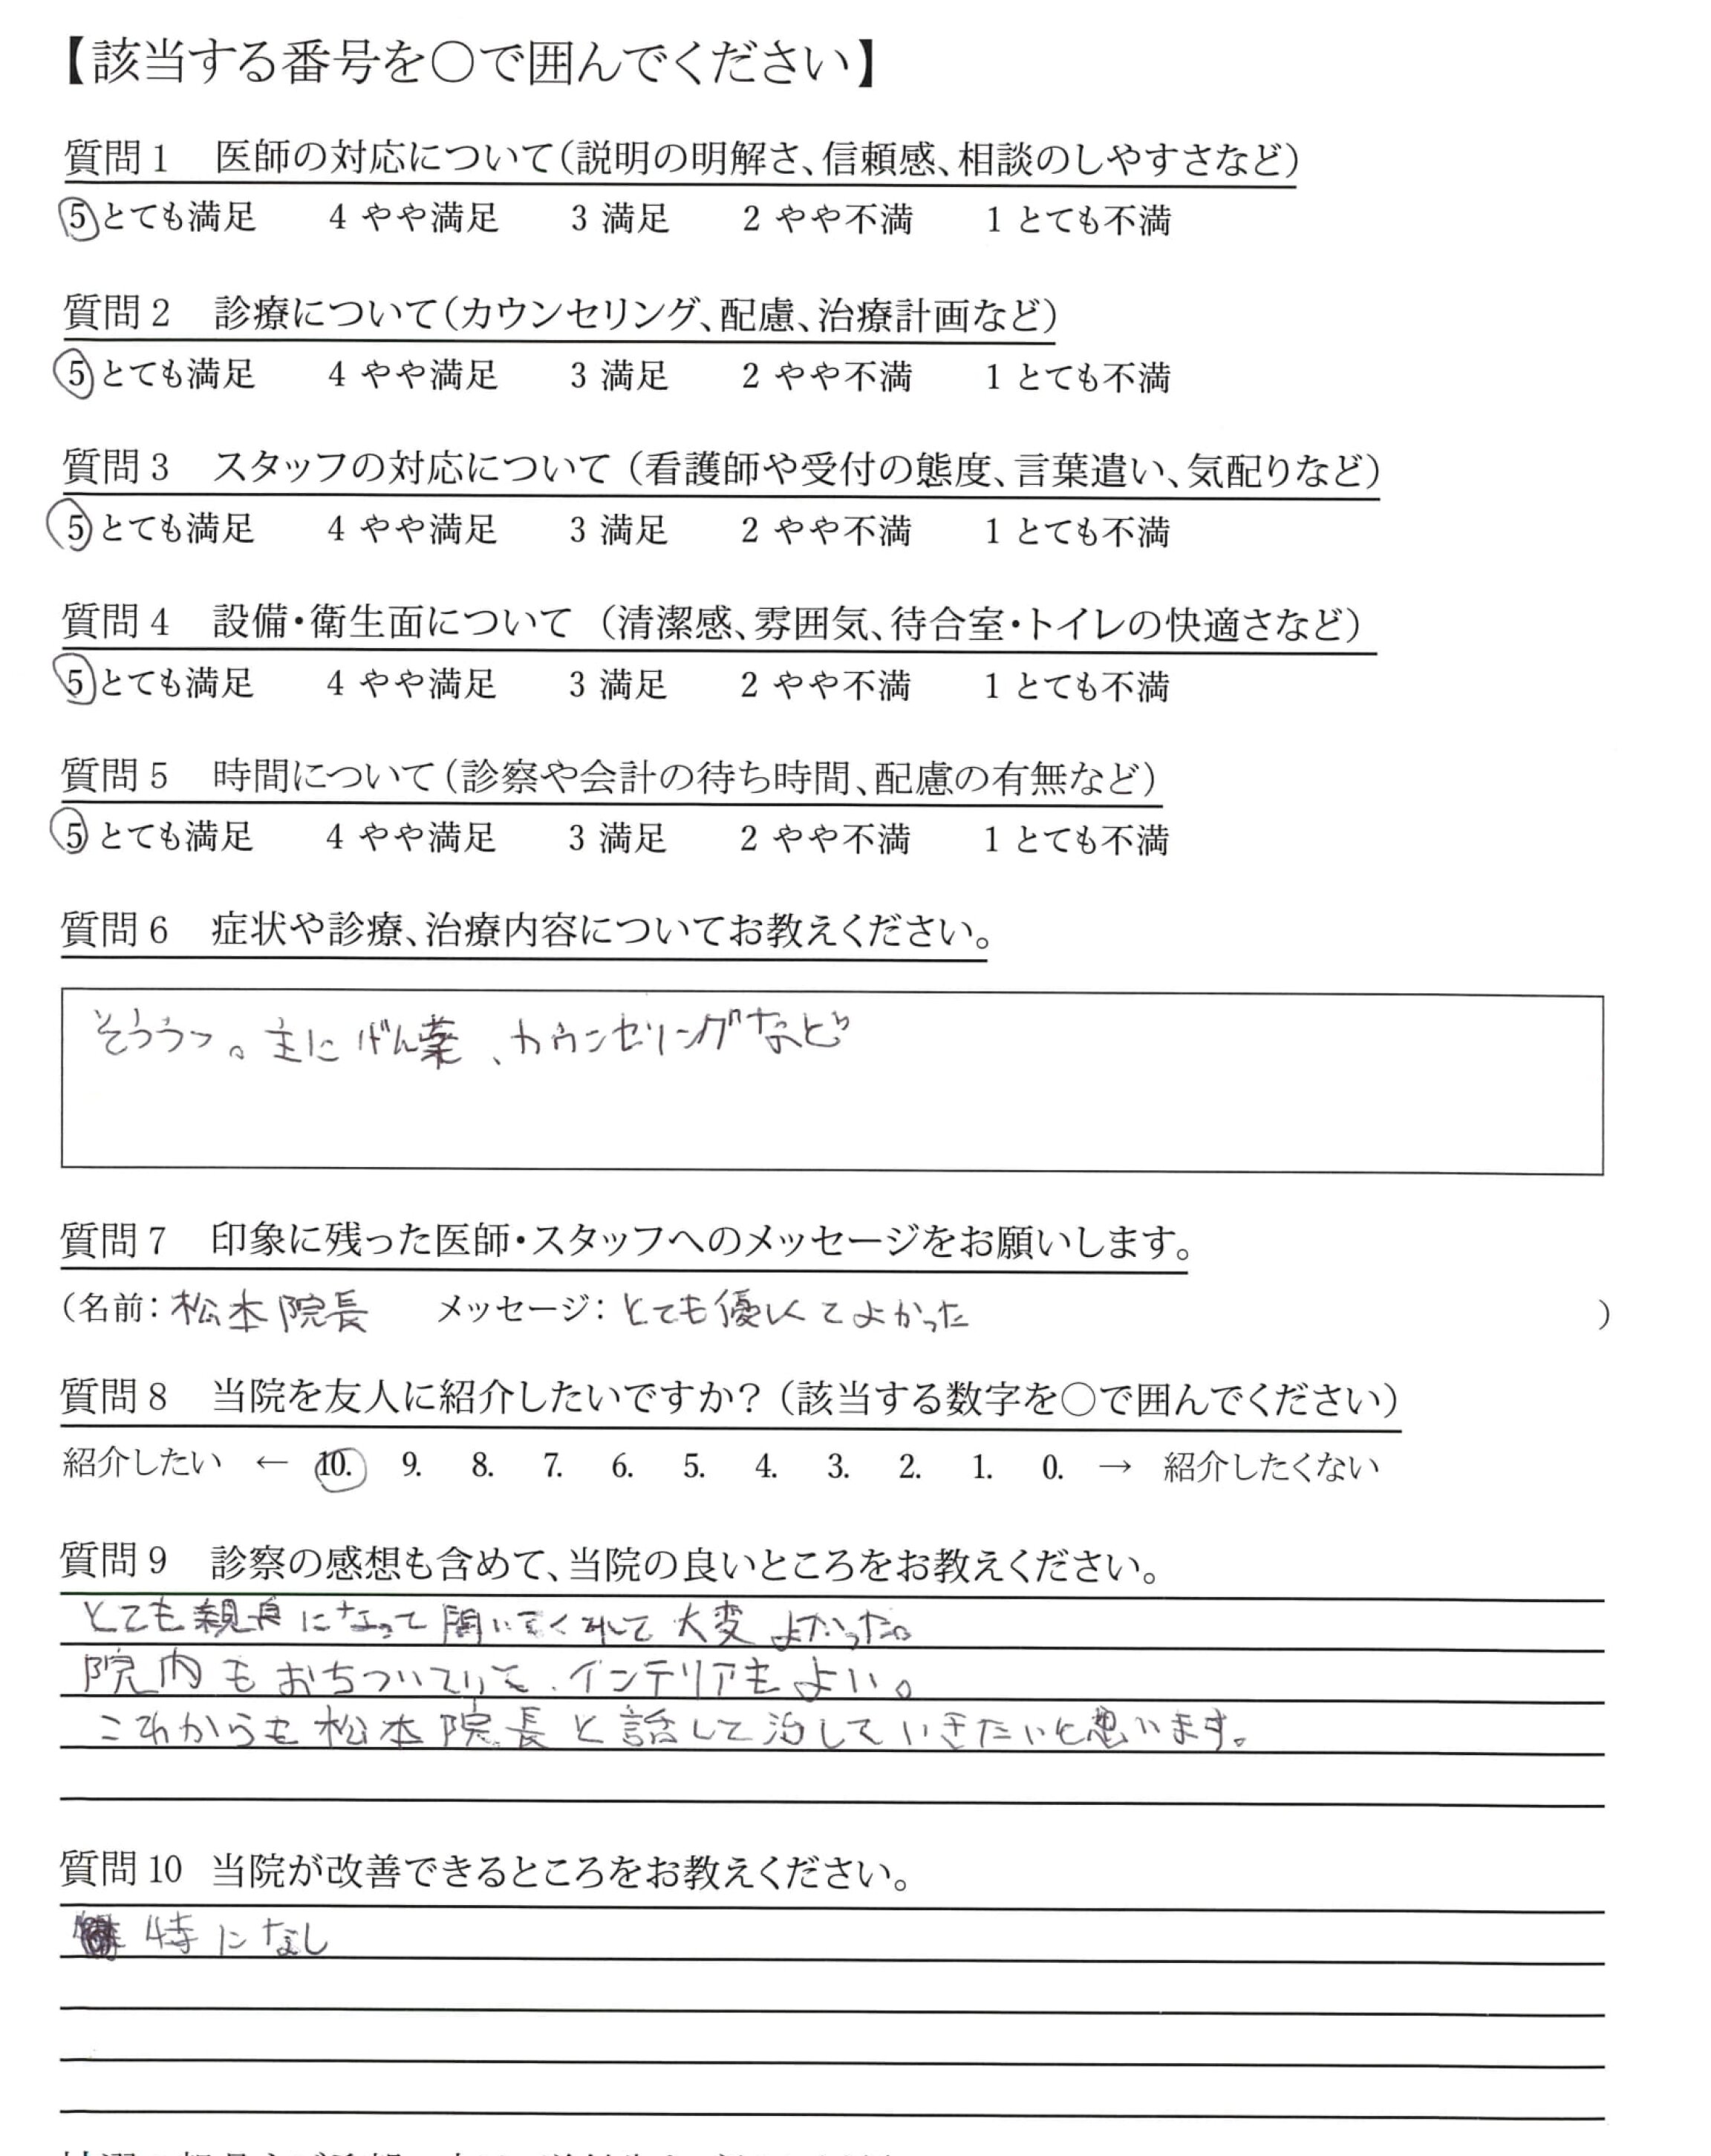 【該当する番号を〇で囲んでください】
質問1 医師の対応について（説明の明解さ、信頼感、相談のしやすさなど）
5 とても満足 4 やや満足 3 満足 2 やや不満 1 とても不満
質問2 診療について（カウンセリング、配慮、治療計画など）
5 とても満足 4 やや満足 3 満足 2 やや不満 1 とても不満
質問3 スタッフの対応について（看護師や受付の態度、言葉遣い、気配りなど）
5 とても満足 4 やや満足 3 満足 2 やや不満 1 とても不満
質問4 設備・衛生面について（清潔感、雰囲気、待合室・トイレの快適さなど）
5 とても満足 4 やや満足 3 満足 2 やや不満 1 とても不満
質問5 時間について（診察や会計の待ち時間、配慮の有無など）
5 とても満足 4 やや満足 3 満足 2 やや不満 1 とても不満
質問6 症状や診療、治療内容についてお教えください。
そううつ。主にげん薬、カウンセリングなど
質問7 印象に残った医師・スタッフへのメッセージをお願いします。
（名前：松本院長 メッセージ：とても優しくてよかった ）
質問8 当院を友人に紹介したいですか？（該当する数字を〇で囲んでください）
紹介したい ← 10. 9. 8. 7. 6. 5. 4. 3. 2. 1. 0. → 紹介したくない
質問9 診察の感想も含めて、当院の良いところをお教えください。
とても親身になって聞いてくれて大変よかった。
院内もおちついていて、インテリアもよい。
これからも松本院長と話して治していきたいと思います。
質問10 当院が改善できるところをお教えください。
特になし